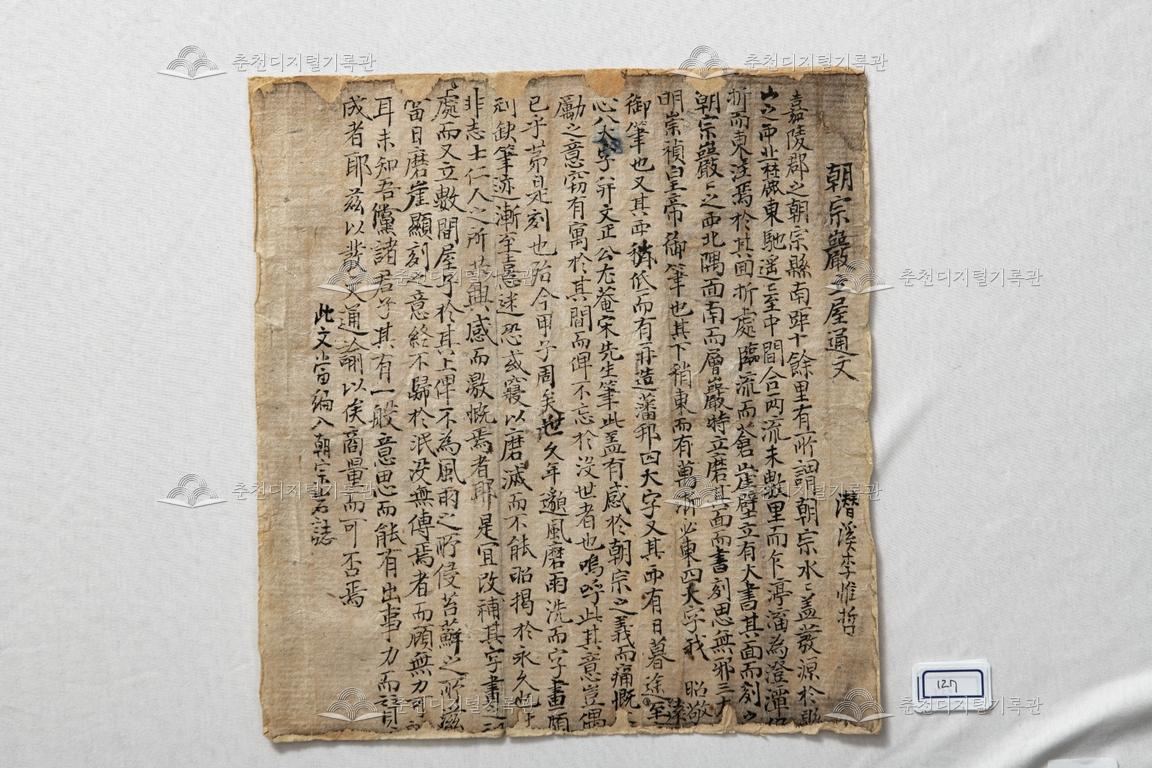 朝宗巖立屋通文
潛溪李惟哲
嘉陵郡之朝宗縣南距十餘里有所謂朝宗水〻盖發源於
山之西北 東馳遥〻至中間合兩流未數里而乍渟滀為澄潭
折而東注焉於其回折處臨流而蒼崖壁立有大書其面而刻之
朝宗巖〻之西北隅面南而層巖特立磨其面而書刻思無邪三字
明崇禎皇帝御筆也其下稍東而有萬折必東四大字我 昭敬
御筆也又其西稍低而有再造藩邦四大字又其西有日暮途遠
心八大字幷文正公尤菴宋先生筆此盖有感於朝宗之義而痛慨
勵之意窃有寓於其間而俾不忘於沒世者也嗚呼此其意豈偶
已乎苐是刻也殆今甲子周矣世久年邈風磨雨洗而字畫頗
刓缺筆迹漸至 迷恐或寢以磨滅而不能昭揭於永久也
非志士仁人之所共興感而激慨焉者耶是宜改補其字畫
處而又立數間屋子於其上俾不為風雨之所侵苔蘚之所
當日磨崖顯刻 意終不歸於泯沒無傳焉者而顧無力可
耳未知吾儻諸君子其有一般意思而能有出事力而
成者耶玆以 文通諭以俟商量而可否焉
此文當編入朝宗岩誌
127
春천디지털기록관
春천디지털기록관
春천디지털기록관
春천디지털기록관
春천디지털기록관
春천디지털기록관
春천디지털기록관
春천디지털기록관